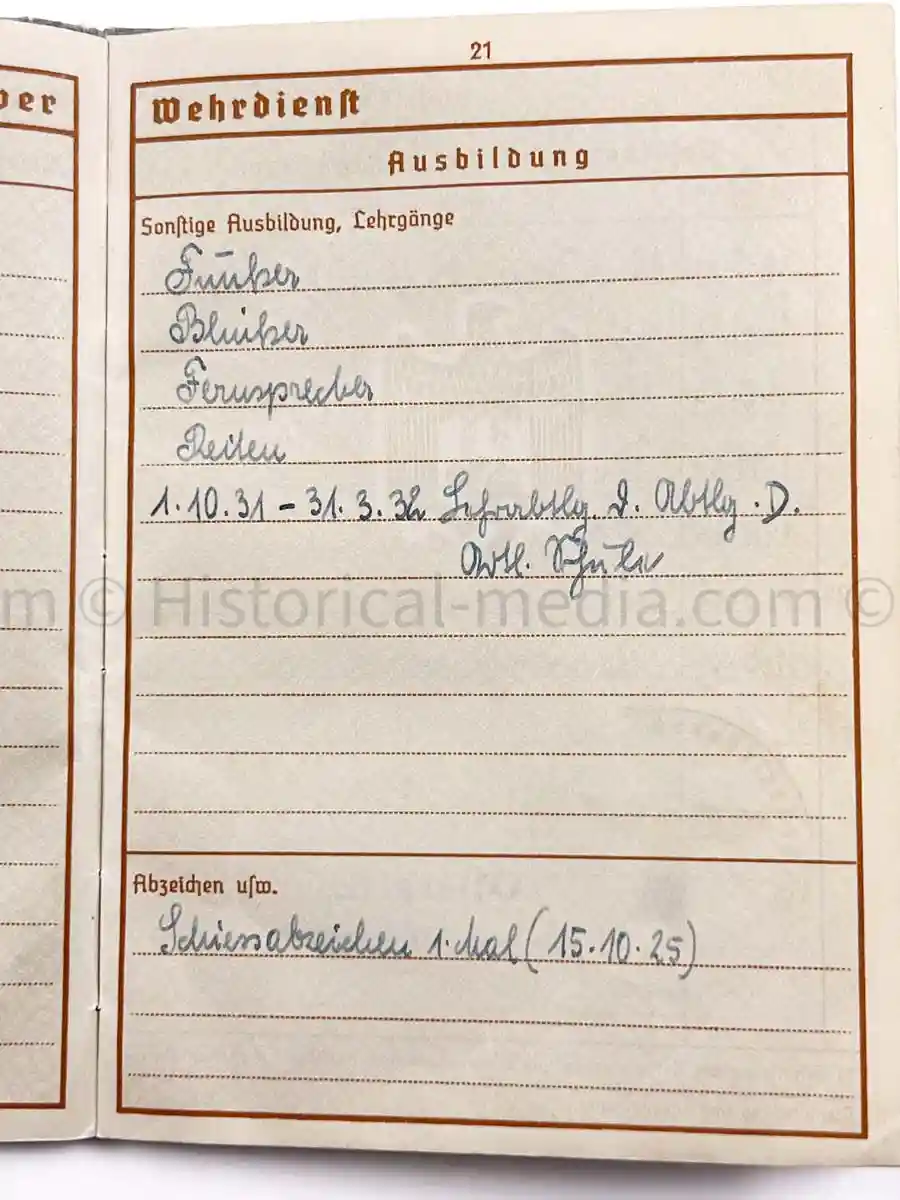 21
ber
Wehrdienst
Ausbildung
Sonstige Ausbildung, Lehrgänge
Funker
Blinker
Fernsprecher
Reiten
1.10.31 - 31.3.32 Lehrabtlg. d. Abtlg. D.
Artl. Schule
m © Historical-media.com ©
Abzeichen usw.
Schiessabzeichen 1. Mal (15.10.25)